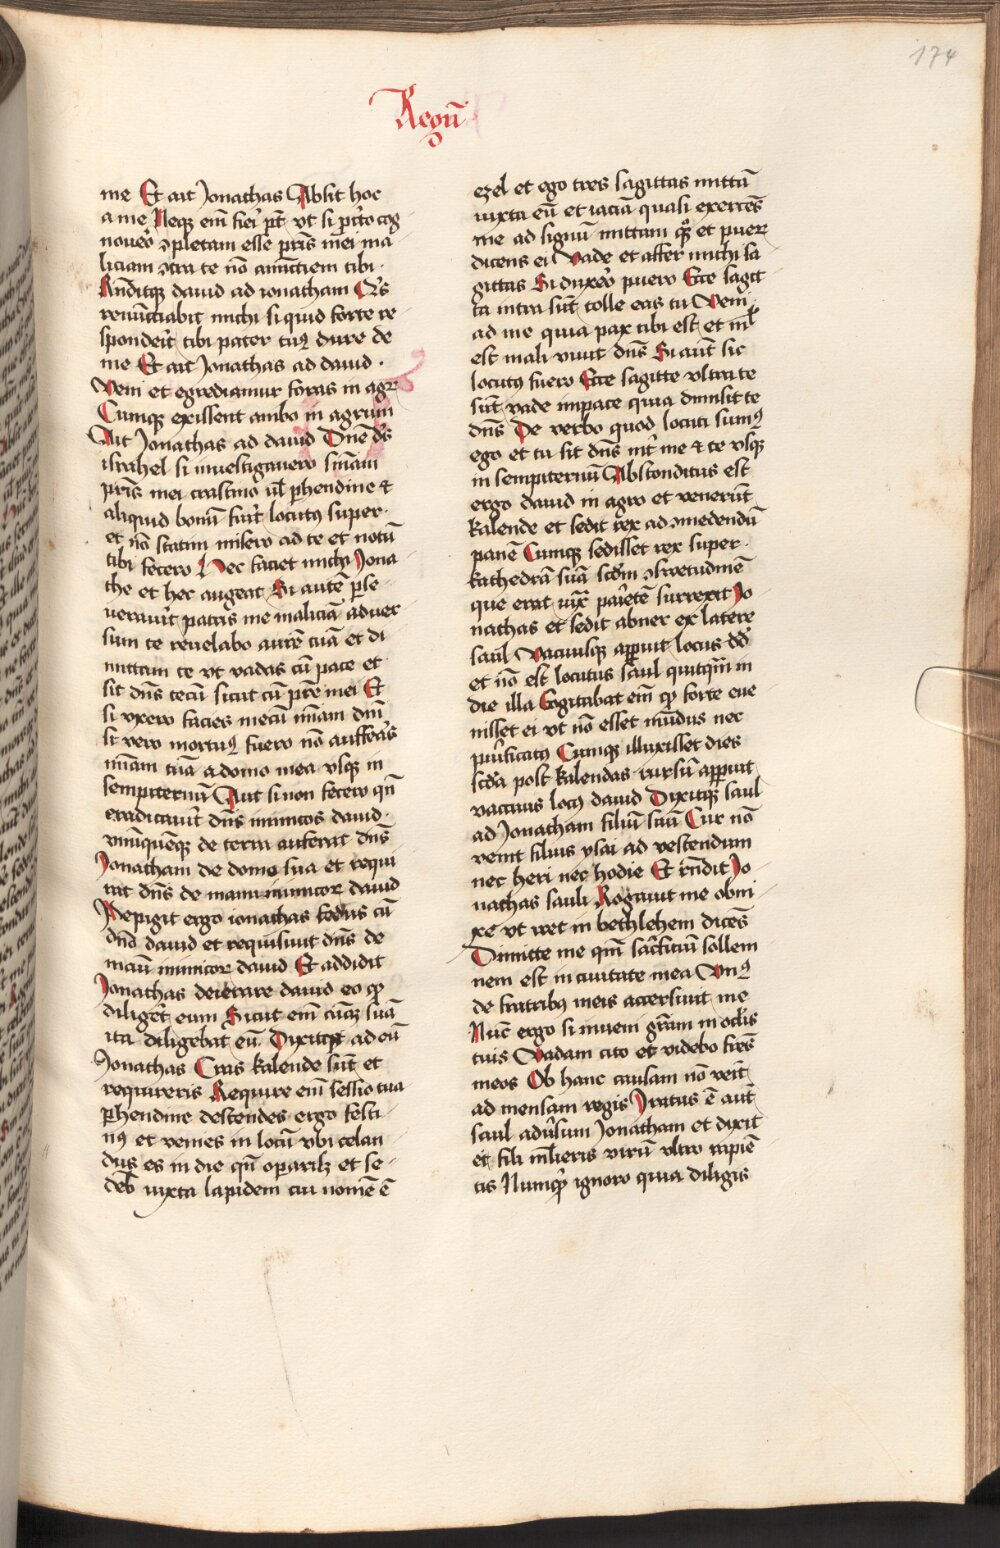 174
Regū
me Et ait Jonathas Absit hoc
a me Neqꝫ em̄ fieri pt̄ vt si ꝑcto cog
nouero ↄpletam esse pr̄is mei ma
liciam ↄtra te nō annūctiem tibi ·
Rn̄ditqꝫ dauid ad ionatham Qͥs
renūnctiabit michi si quid forte re
spondeit tibi pater tuꝰ dure de
me Et ait Jonathas ad dauid ·
Veni et egrediamur foras in agꝝ
Cumqꝫ exissent ambo in agrum
Ait Jonathas ad dauid Dn̄e ds̄
israhel si inuestigauero sn̄iam
pr̄is mei crastino ul̄ ꝑhendine ⁊
aliquid bonū fuit locutꝰ super ·
et nō statim misero ad te et notū
tibi fecero Hec faciet michi Jona
the et hec augeat Si autē ꝑse
uerauit patris me maliciā aduer
sum te reuelabo aurē tuā et di
mittam te vt vadas cū pace et
sit dn̄s tecū sicut cū pr̄e mei Et
si vixero facies mecū miām dn̄i
si vero mortuꝰ fuero nō aufferas
miam tuā a domo mea vsqꝫ in
sempiternū Aut si non fecero qn̄
eradicauit dn̄s inimicos dauid ·
vnūquēqꝫ de terra auferat dn̄s
Jonatham de domo sua et requi
rat dn̄s de manu inimicoꝝ dauid
Pepigit ergo ionathas fedus cū
dn̄o dauid et requisiuit dn̄s de
manū inimicoꝝ dauid Et addidit
Jonathas deierare dauid eo ꝙ
diliget eum Sicut em̄ aīaꝫ suā
ita diligebat eū Dixitqꝫ ad eū
Jonathas Cras kalende sūt et
requireris Require em̄ sessio tua
ꝑhendine descendes ergo festi
nꝰ et venies in locū vbi celan
dus es in die qn̄ oꝑari lꝫ et se
deb̄ iuxta lapidem cui nomē ē
ezel et ego tres sagittas mittā
iuxta eū et iaciā quasi exerces
me ad signū mittam qꝫ et pueꝝ
dicens ei Vade et affer michi sa
gittas Si dixero puero Ecce sagit
ta intra sūt tolle eas tu Veni
ad me quia pax tibi est et nl̄
est mali viuit dn̄s Si aūt sic
locutꝰ fuero Ecce sagitte vltra te
sūt vade in pace quia dimisit te
dn̄s De verbo quod locuti sumꝰ
ego et tu sit dn̄s int̄ me ⁊ te vsqꝫ
in sempiternū Absconditus est
ergo dauid in agro et venerūt
kalende et sedit rex ad ↄmedendū
panē Cumqꝫ sedisset rex super ·
kathedrā suā scdm̄ ↄswetudinē
que erat iux̄ parietē surrexit Jo
nathas et sedit abner ex latere
saul Vacuusqꝫ apparuit locus dd̄
et nō est locutus saul quitqm̄ in
die illa Cogitabat em̄ ꝙ forte eue
nisset ei vt nō esset mūdus nec
purificatꝰ Cumqꝫ illuxisset dies
scd̄a post kalendas rursū apparuit
vacuus locꝰ dauid Dixitqꝫ saul
ad Jonatham filiū suū Cur nō
venit filius ysai ad vescendum
nec heri nec hodie Et rn̄dit Jo
nathas sauli Rogauit me obni
xe vt iret in bethlehem dices̄
Dimitte me qm̄ sacrficiū sollem
nem est in ciuitate mea Vnꝰ
de fratribꝰ meis accersiuit me
Nūc ergo si inueni gr̄am in oclis
tuis Vadam cito et videbo fres̄
meos Ob hanc causam nō veit
ad mensam regis Jratus ē aūt
saul adūsum Jonatham et dixit
ei fili ml̄ieris virū vltro rapiē
tis Numqꝫ ignoro quia diligis